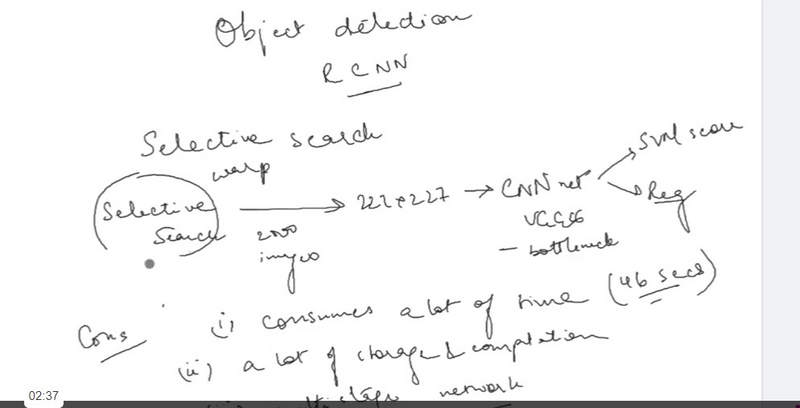 Object detection
RCNN
Selective search
warp
Selective Search → 227*227 → CNN net → SVM score
→ Reg
2000 images
VGG16
- bottleneck
Cons
(i) consumes a lot of time (46 secs)
(ii) a lot of storage & computation
network
02:37